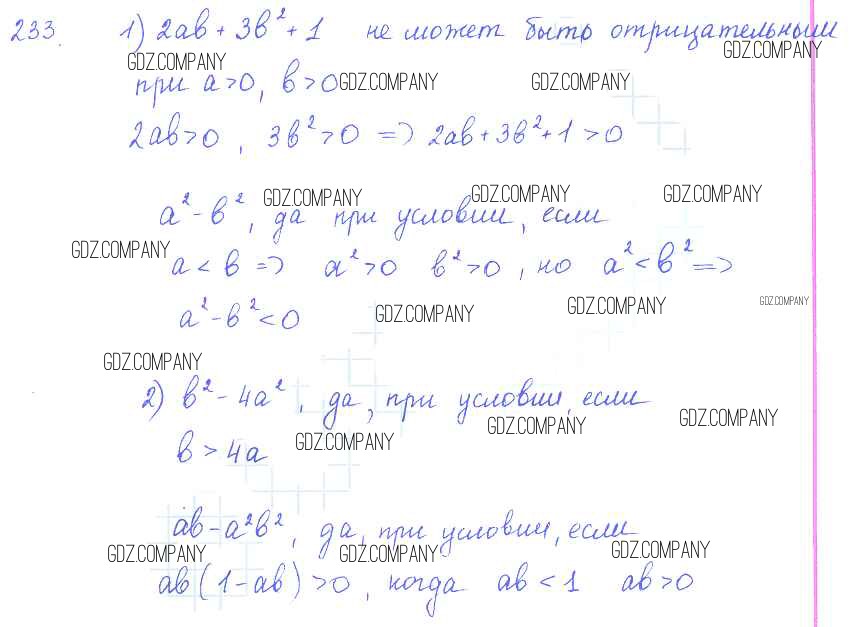 233. 1) 2ab + 3b² + 1 не может быть отрицательным
GDZ.COMPANY GDZ.COMPANY
при a>0, b>0 GDZ.COMPANY GDZ.COMPANY
2ab>0, 3b²>0 => 2ab+3b²+1>0
GDZ.COMPANY GDZ.COMPANY GDZ.COMPANY
a²-b², да при условии, если
GDZ.COMPANY
a < b => a²>0 b²>0, но a²<b² =>
a²-b²<0 GDZ.COMPANY GDZ.COMPANY GDZ.COMPANY
GDZ.COMPANY
2) b²-4a², да, при условии, если
GDZ.COMPANY GDZ.COMPANY
b > 4a GDZ.COMPANY
ab-a²b², да, при условии, если
GDZ.COMPANY GDZ.COMPANY GDZ.COMPANY
ab(1-ab)>0, когда ab<1 ab>0